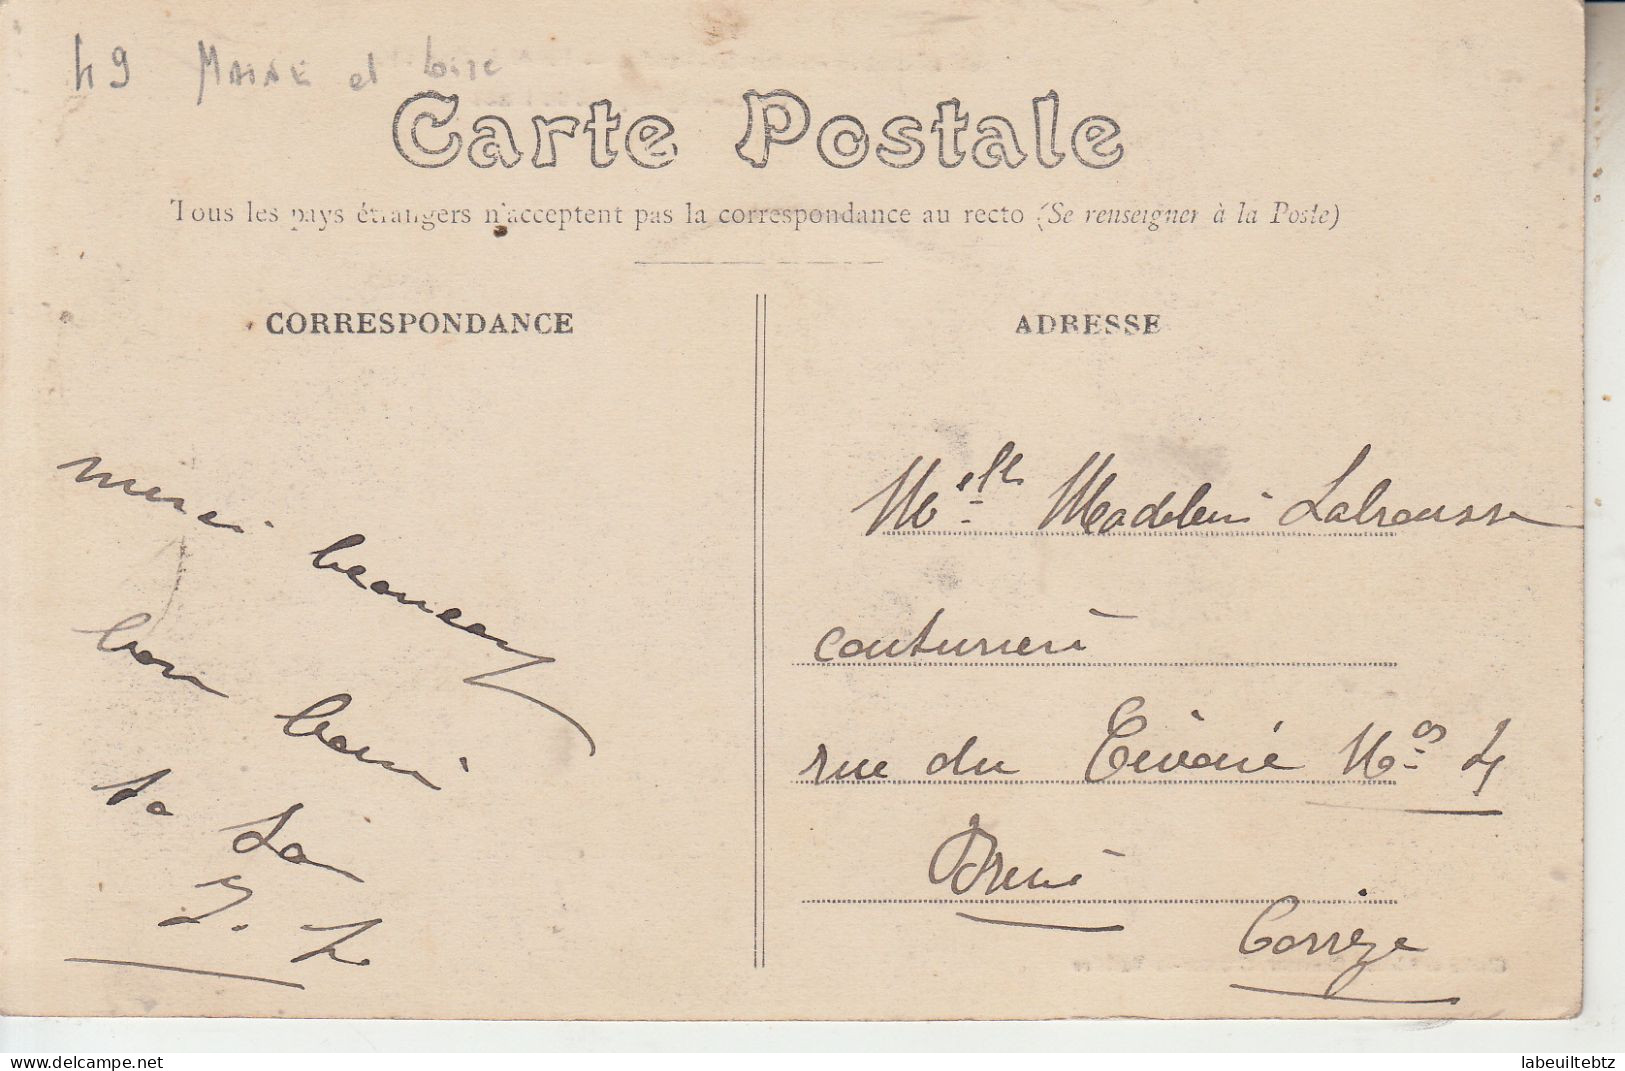 49 Maine et Loire
Carte Postale
Tous les pays étrangers n'acceptent pas la correspondance au recto (Se renseigner à la Poste)
CORRESPONDANCE
ADRESSE
merci beaucoup
bon baiser
ta
J. L.
Melle Madeleine Labrousse
couturière
rue du Civoire Nos 4
Brive
Corrèze
https://www.delcampe.net
labeuiltebtz